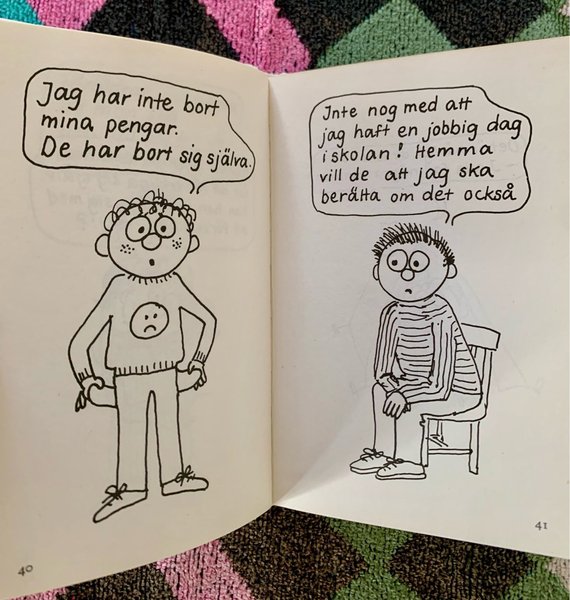 Jag har inte bort
mina pengar.
De har bort sig själva.
40
Inte nog med att
jag haft en jobbig dag
i skolan! Hemma
vill de att jag ska
berätta om det också
41